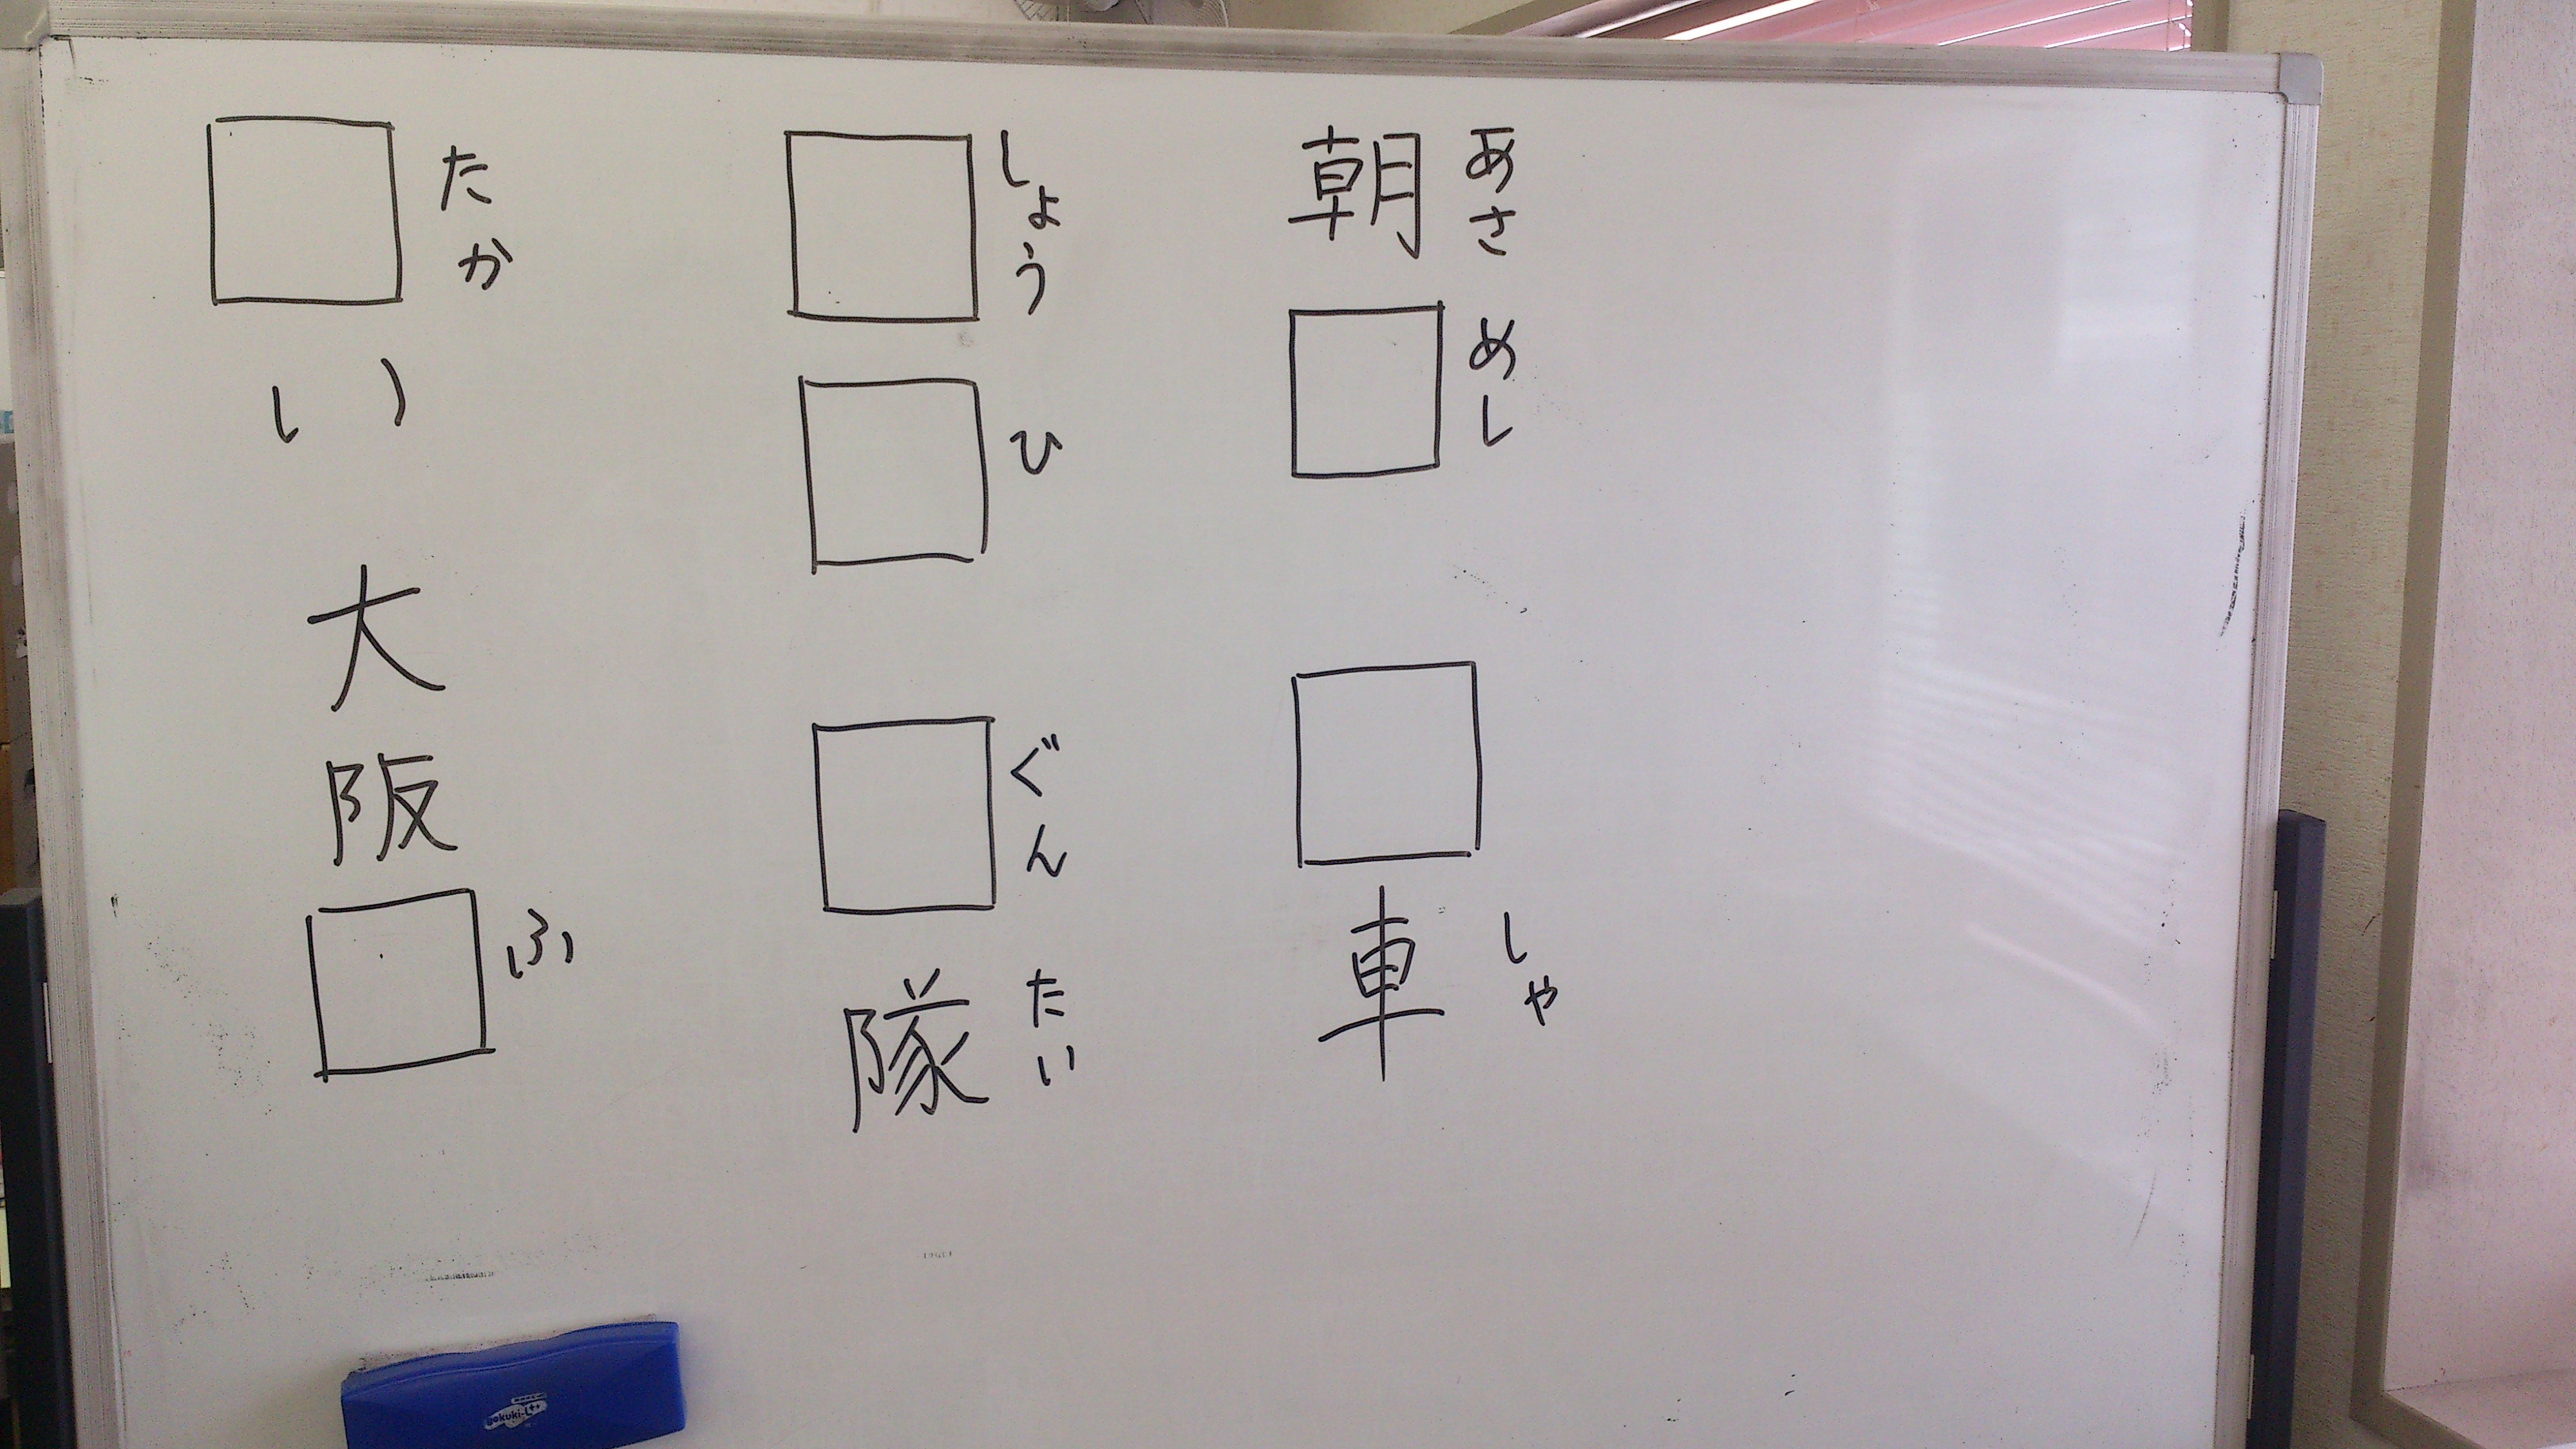 朝□
あさめし
□車
しゃ
□□
しょうひ
□隊
ぐんたい
□い
たか
大阪□
ふ